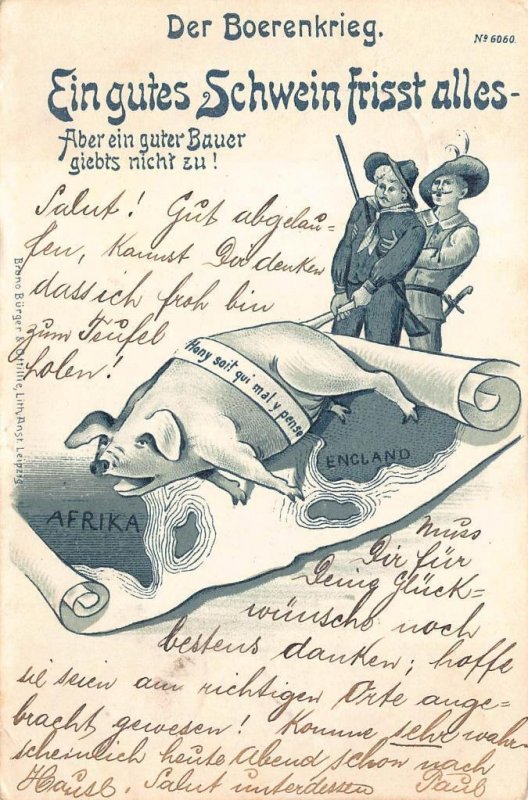 Der Boerenkrieg.
Nº 6060.
Ein gutes Schwein frisst alles-
Aber ein guter Bauer
giebts nicht zu!
Salut! Gut abgelau-
fen, kannst Dir denken
dass ich froh bin
zum Teufel
holen!
Hony soit qui mal y pense
ENGLAND
AFRIKA
Bruno Bürger & Ottillie, Lith. Anst. Leipzig
Muss
Dir für
Deine Glück-
wünsche noch
bestens danken; hoffe
sie seien am richtigen Orte ange-
bracht gewesen! Komme sehr wahr-
scheinlich heute Abend schon nach
Hause. Salut unterdessen Paul